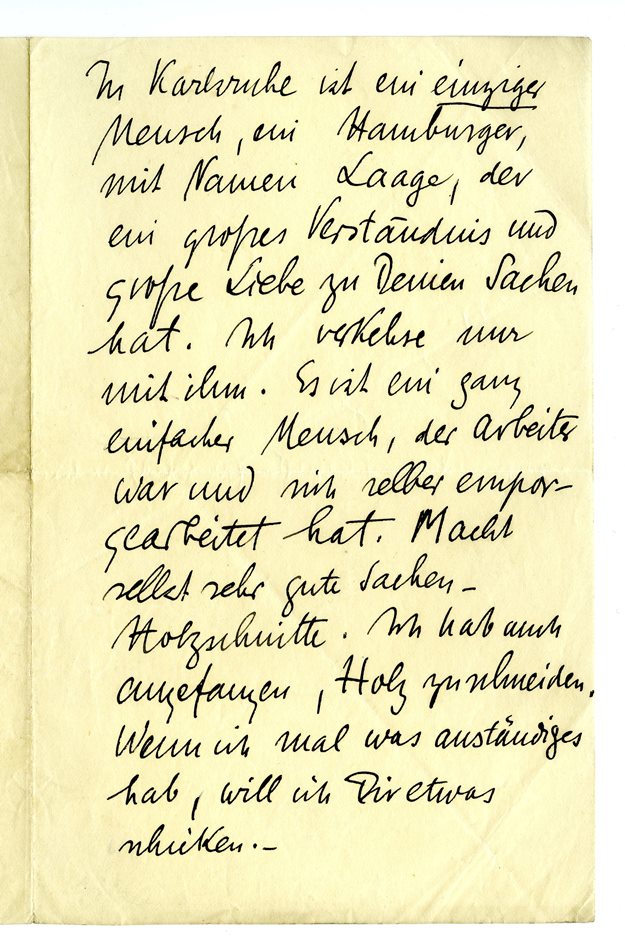 In Karlsruhe ist ein einziger
Mensch, ein Hamburger,
mit Namen Laage, der
ein großes Verständnis und
große Liebe zu Deinen Sachen
hat. Ich verkehre nur
mit ihm. Es ist ein ganz
einfacher Mensch, der Arbeiter
war und sich selber empor-
gearbeitet hat. Macht
selbst sehr gute Sachen –
Holzschnitte. Ich hab auch
angefangen, Holz zu schneiden.
Wenn ich mal was anständiges
hab, will ich Dir etwas
schicken. –